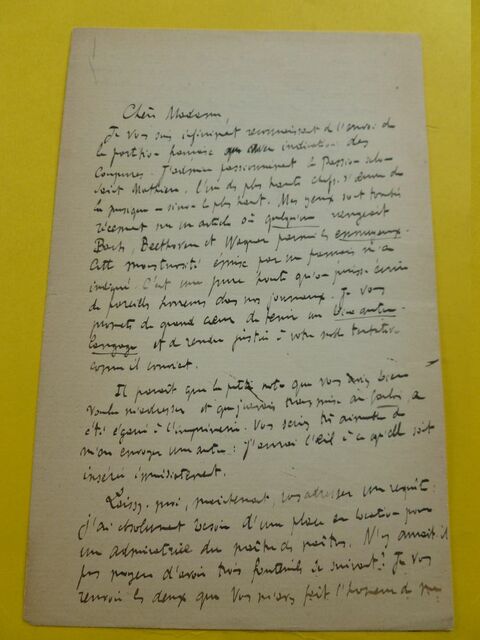 Chère Madame,
Je vous suis infiniment reconnaissant de l'envoi de
la partition parvenue avec indications des
coupures. J'admire passionnément la Passion selon
Saint Mathieu, l'un des plus hauts chefs-d'œuvre de
la musique — sinon le plus haut. Mes yeux sont tombés
récemment sur un article où quelqu'un rangeait
Bach, Beethoven et Wagner parmi les ennuyeux.
Cette monstruosité émise par un m'a
indigné. C'est une pure honte qu'on puisse écrire
de pareilles horreurs dans nos journaux. Je vous
promets de grand cœur de tenir un bien autre
langage et de rendre justice à votre noble tentative
comme il convient.
Il paraît que la petite note que vous avez bien
voulu m'adresser et que j'avais transmise au Gaulois, a
été égarée à l'imprimerie. Vous seriez très aimable de
m'en envoyer une autre : j'aurai l'œil à ce qu'elle soit
insérée immédiatement.
Laissez-moi, maintenant, vous adresser une requête :
j'ai absolument besoin d'une place en location pour
une admiratrice du maître des maîtres. N'y aurait-il
pas moyen d'avoir trois fauteuils se suivant ? Je vous
renvoie les deux que vous m'avez fait l'honneur de